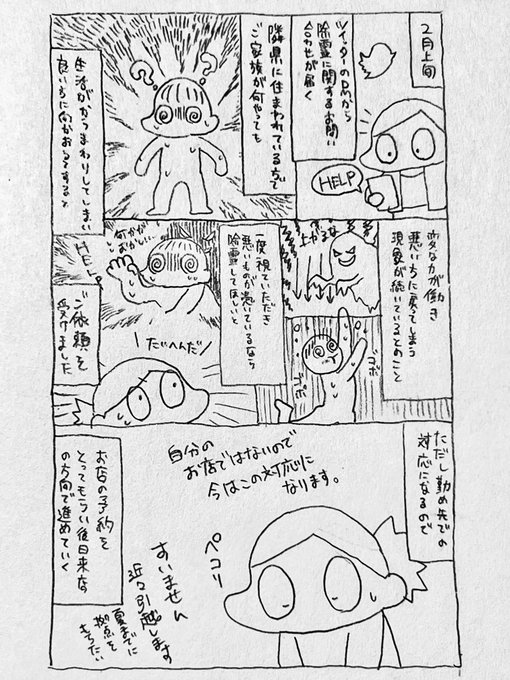 2月上旬
ツイッターのDMから
除霊に関するお問い
合わせが届く
HELP
隣県に住まわれている方で
ご家族が何やっても
??
生活がから
まわりしてしまい
良いちに向かおうとすると
変な力が働き
悪いちに戻ってしまう
現象が続いているとのこと
ゴボ
ゴボ
一度視ていただき
悪いものが憑いているなら
除霊してほしいと
何かが
おかしい…
HELP
ご依頼を
受けました
たいへんだ
ただし勤め先での
対応になるので
自分の
お店ではないので
今はこの対応に
なります。
ペコリ
お店の予約を
とってもらい後日来店
の方向で進めていく
すいません
近々引越します
夏までに
拠点を
もちたい